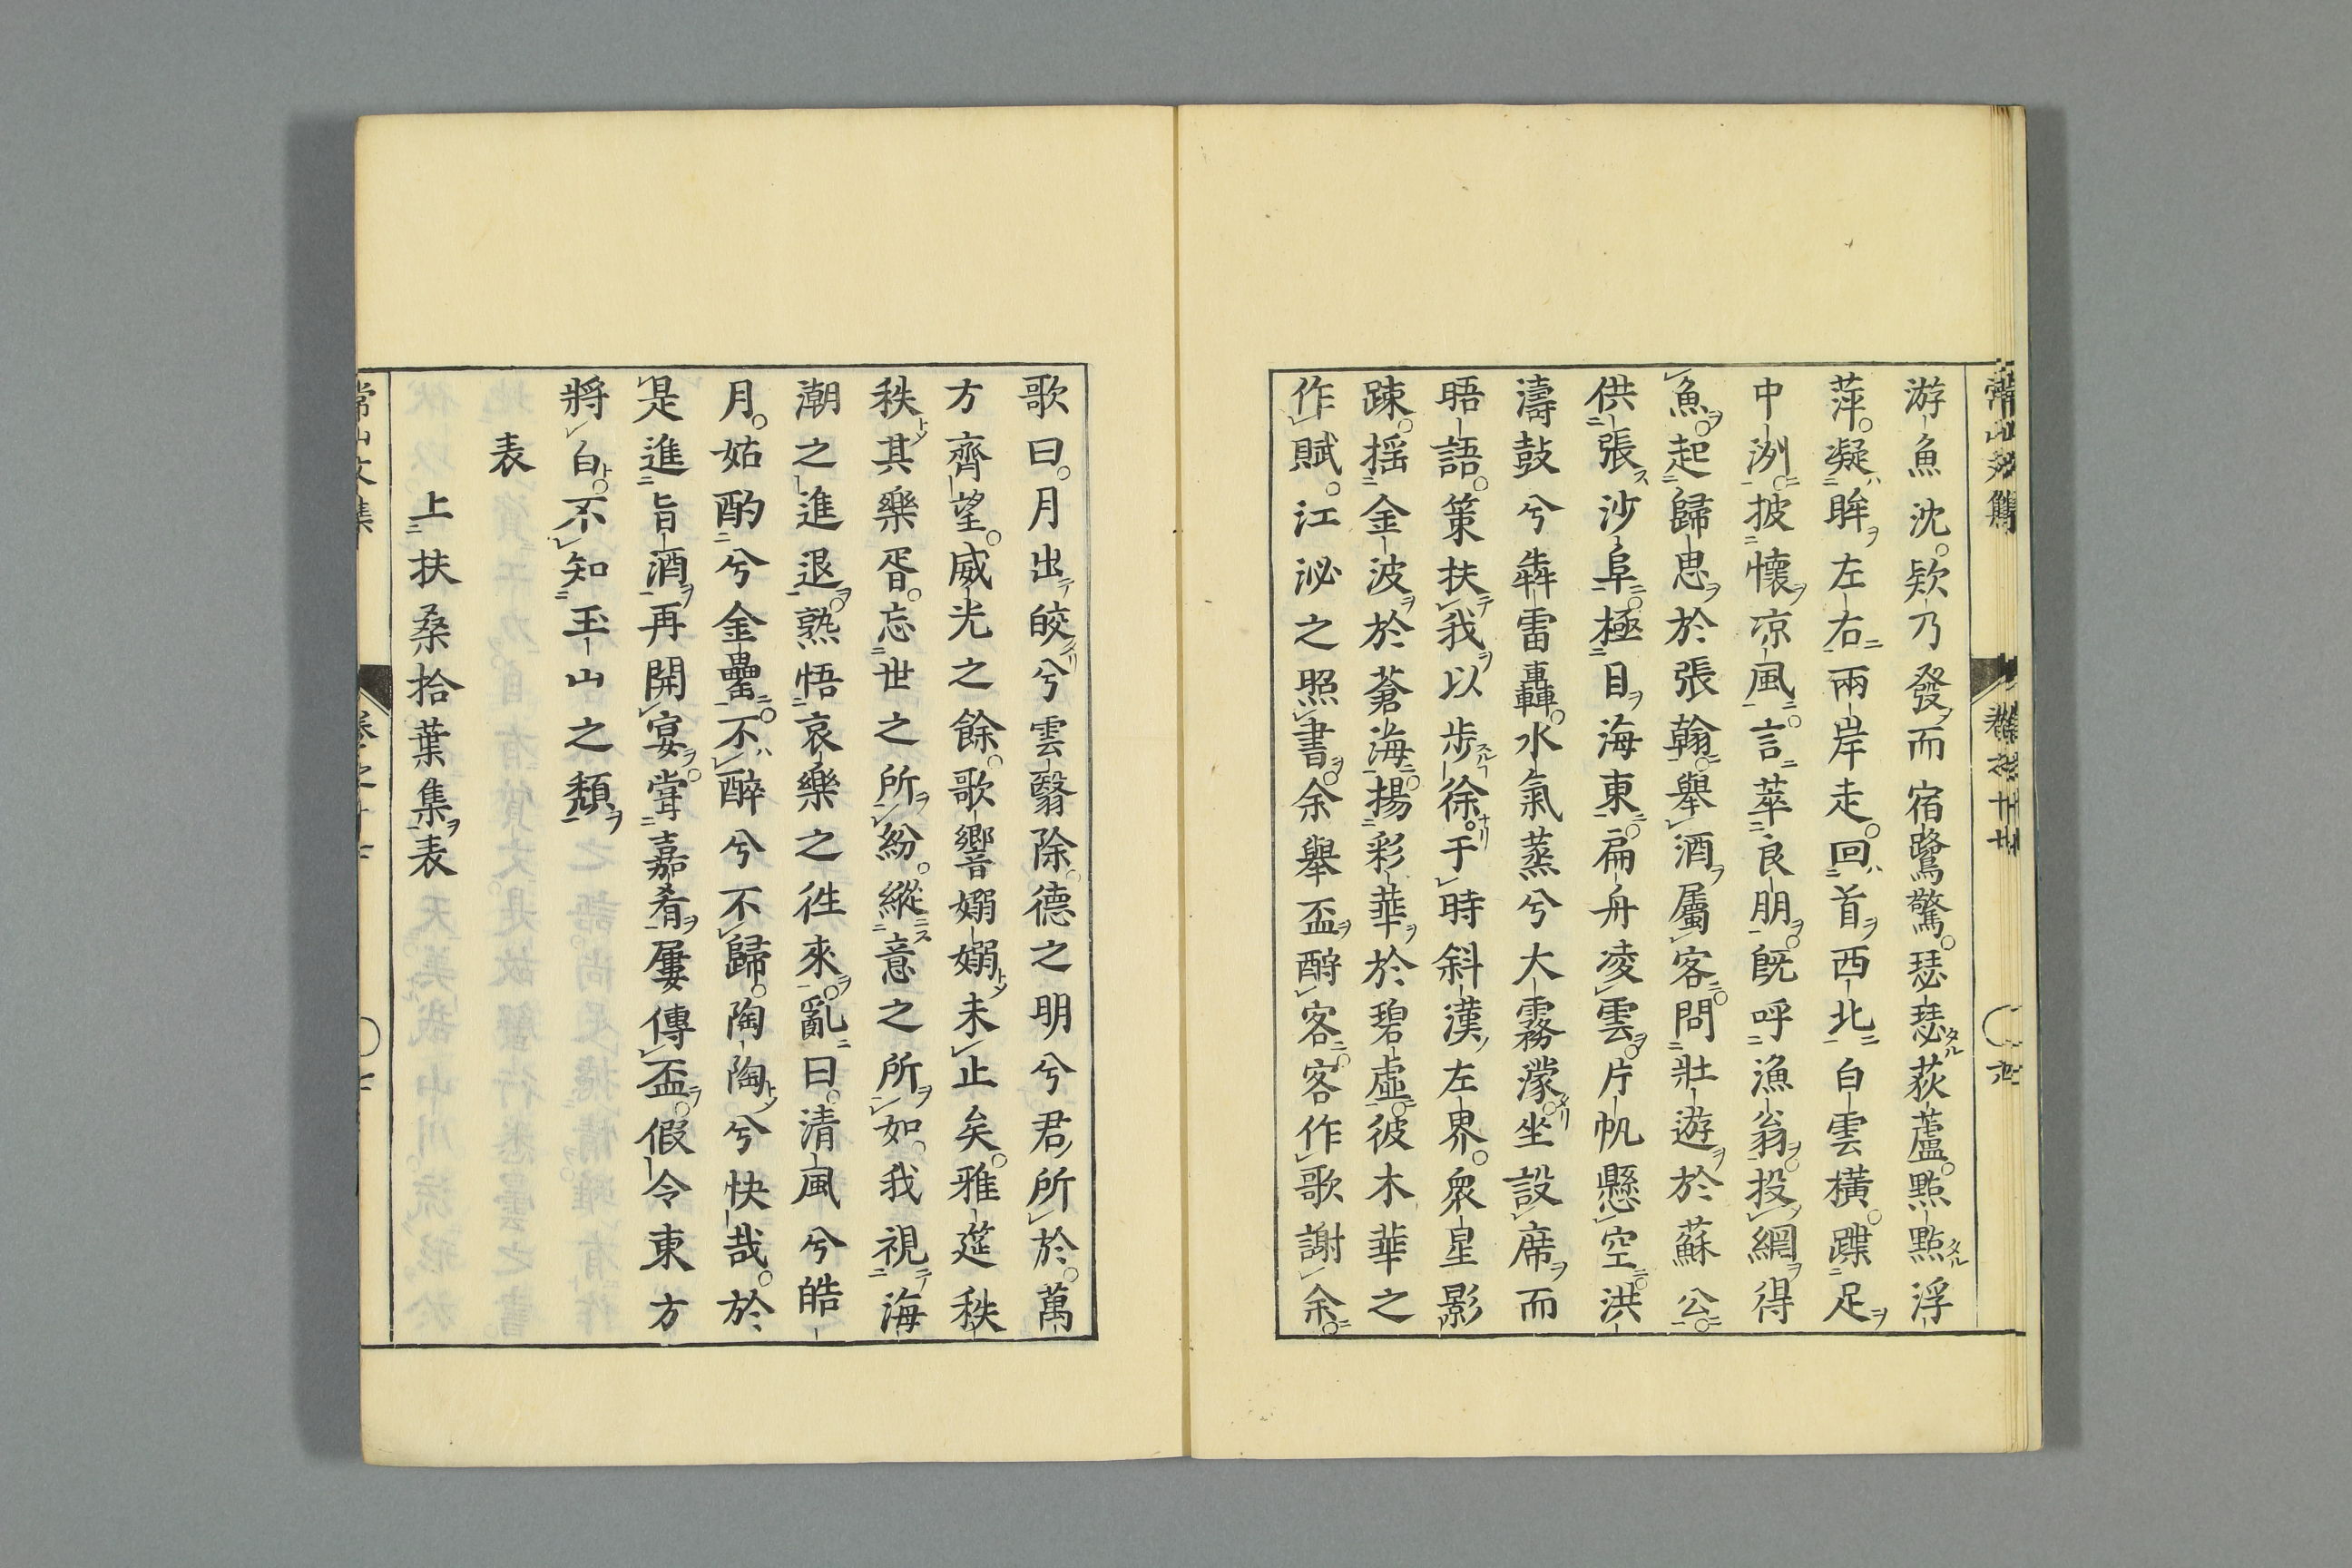 游魚沈。欵乃發而宿鷺驚。瑟瑟荻蘆。點點浮
萍。凝眸左右兩岸走。回首西北白雲橫。蹀足
中洌。披懷凉風。言萃良朋。既呼漁翁。投網得
魚。起歸思於張翰。舉酒屬客。問壯遊於蘇公。
供張沙阜。極目海東。扁舟凌雲。片帆懸空。洪
濤鼓兮犇雷轟。水氣蒸兮大霧濛。坐設席而
晤語。策扶我以步徐。于時斜漢左界。衆星影
踈。揺金波於蒼海。揚彩華於碧虛。彼木華之
作賦。江泌之照書。余舉盃酹客。客作歌謝余。
歌曰。月出皎兮雲翳除。德之明兮君所於。萬
方齊望。威光之餘。歌響嫋嫋未止矣。雅筵秩
秩其樂胥。忘世之所紛。縱意之所如。我視海
潮之進退。熟悟哀樂之徃來。亂曰。清風兮皓
月。姑酌兮金罍。不醉兮不歸。陶陶兮快哉。於
是進旨酒再開宴。甞嘉肴屢傳盃。假令東方
將白。不知玉山之頽
表
上扶桑拾葉集表
常山文集